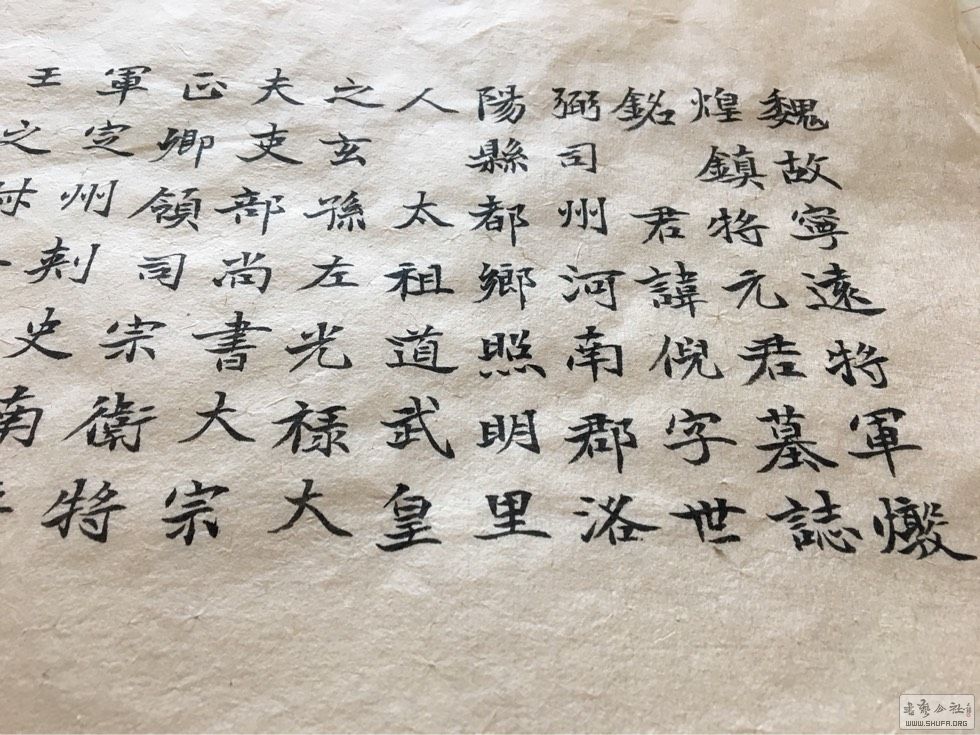 魏故寧遠將軍燉
煌鎮將元君墓誌
銘 君諱倪字世
弼司州河南郡洛
陽縣都鄉照明里
人 太祖道武皇
之玄孫左光禄大
夫吏部尚書大宗
正卿領司宗衛將
軍定州刾史南
王之
书艺公社
WWW.SHUFA.ORG